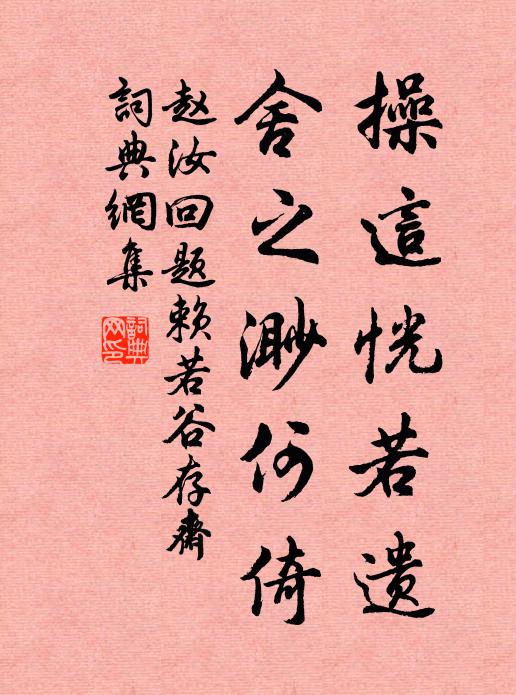 操這恍若遗
舍之渺何倚
赵汝回题赖若谷存齋
詞典網集
詞典网印